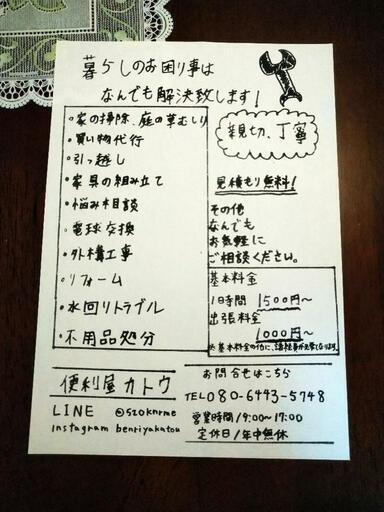 暮らしのお困り事は
なんでも解決致します!
・家の掃除、庭の草むしり
・買い物代行
・引っ越し
・家具の組み立て
・悩み相談
・電球交換
・外構工事
・リフォーム
・水回りトラブル
・不用品処分
親切、丁寧
見積もり無料!
その他
なんでも
お気軽に
ご相談ください。
基本料金
1時間 1500円~
出張料金
1000円~
※基本料金の他に、諸経費が別途なります。
便利屋カトウ
LINE @520knrme
Instagram benriyakatou
お問合せはこちら
TEL080-6443-5748
営業時間/9:00~17:00
定休日/年中無休